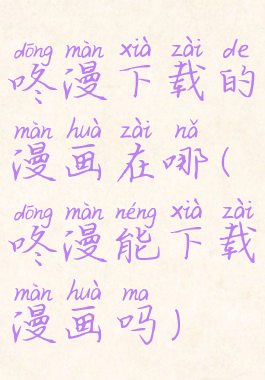 dōng màn xià zài de
咚漫下载的
màn huà zài nǎ
漫画在哪(
dōng màn néng xià zài
咚漫能下载
màn huà ma
漫画吗)